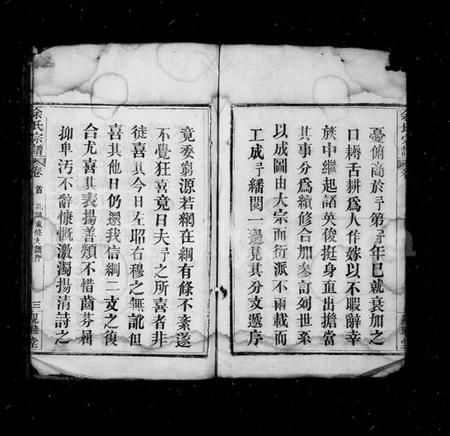 憂俯商於予弟予年已就衰加之
口耨舌耕為人作嫁以不暇辭幸
族中繼起諸英俊挺身直出擔當
其事分為續修合加參訂刻世系
以成圖由大宗而衍派不兩載而
工成予繙閱一過見其分支遞序
竟委窮源若網在綱有條不紊遂
不覺狂喜竟日夫予之所喜者非
徒喜其今日左昭右穆之無訛但
喜其他日仍還我信綱二支之復
合尤喜其表揚善類不惜齒芬屏
抑卑汚不辭慷慨激濁揚清詩之
余氏宗譜
卷首
三
親睦堂